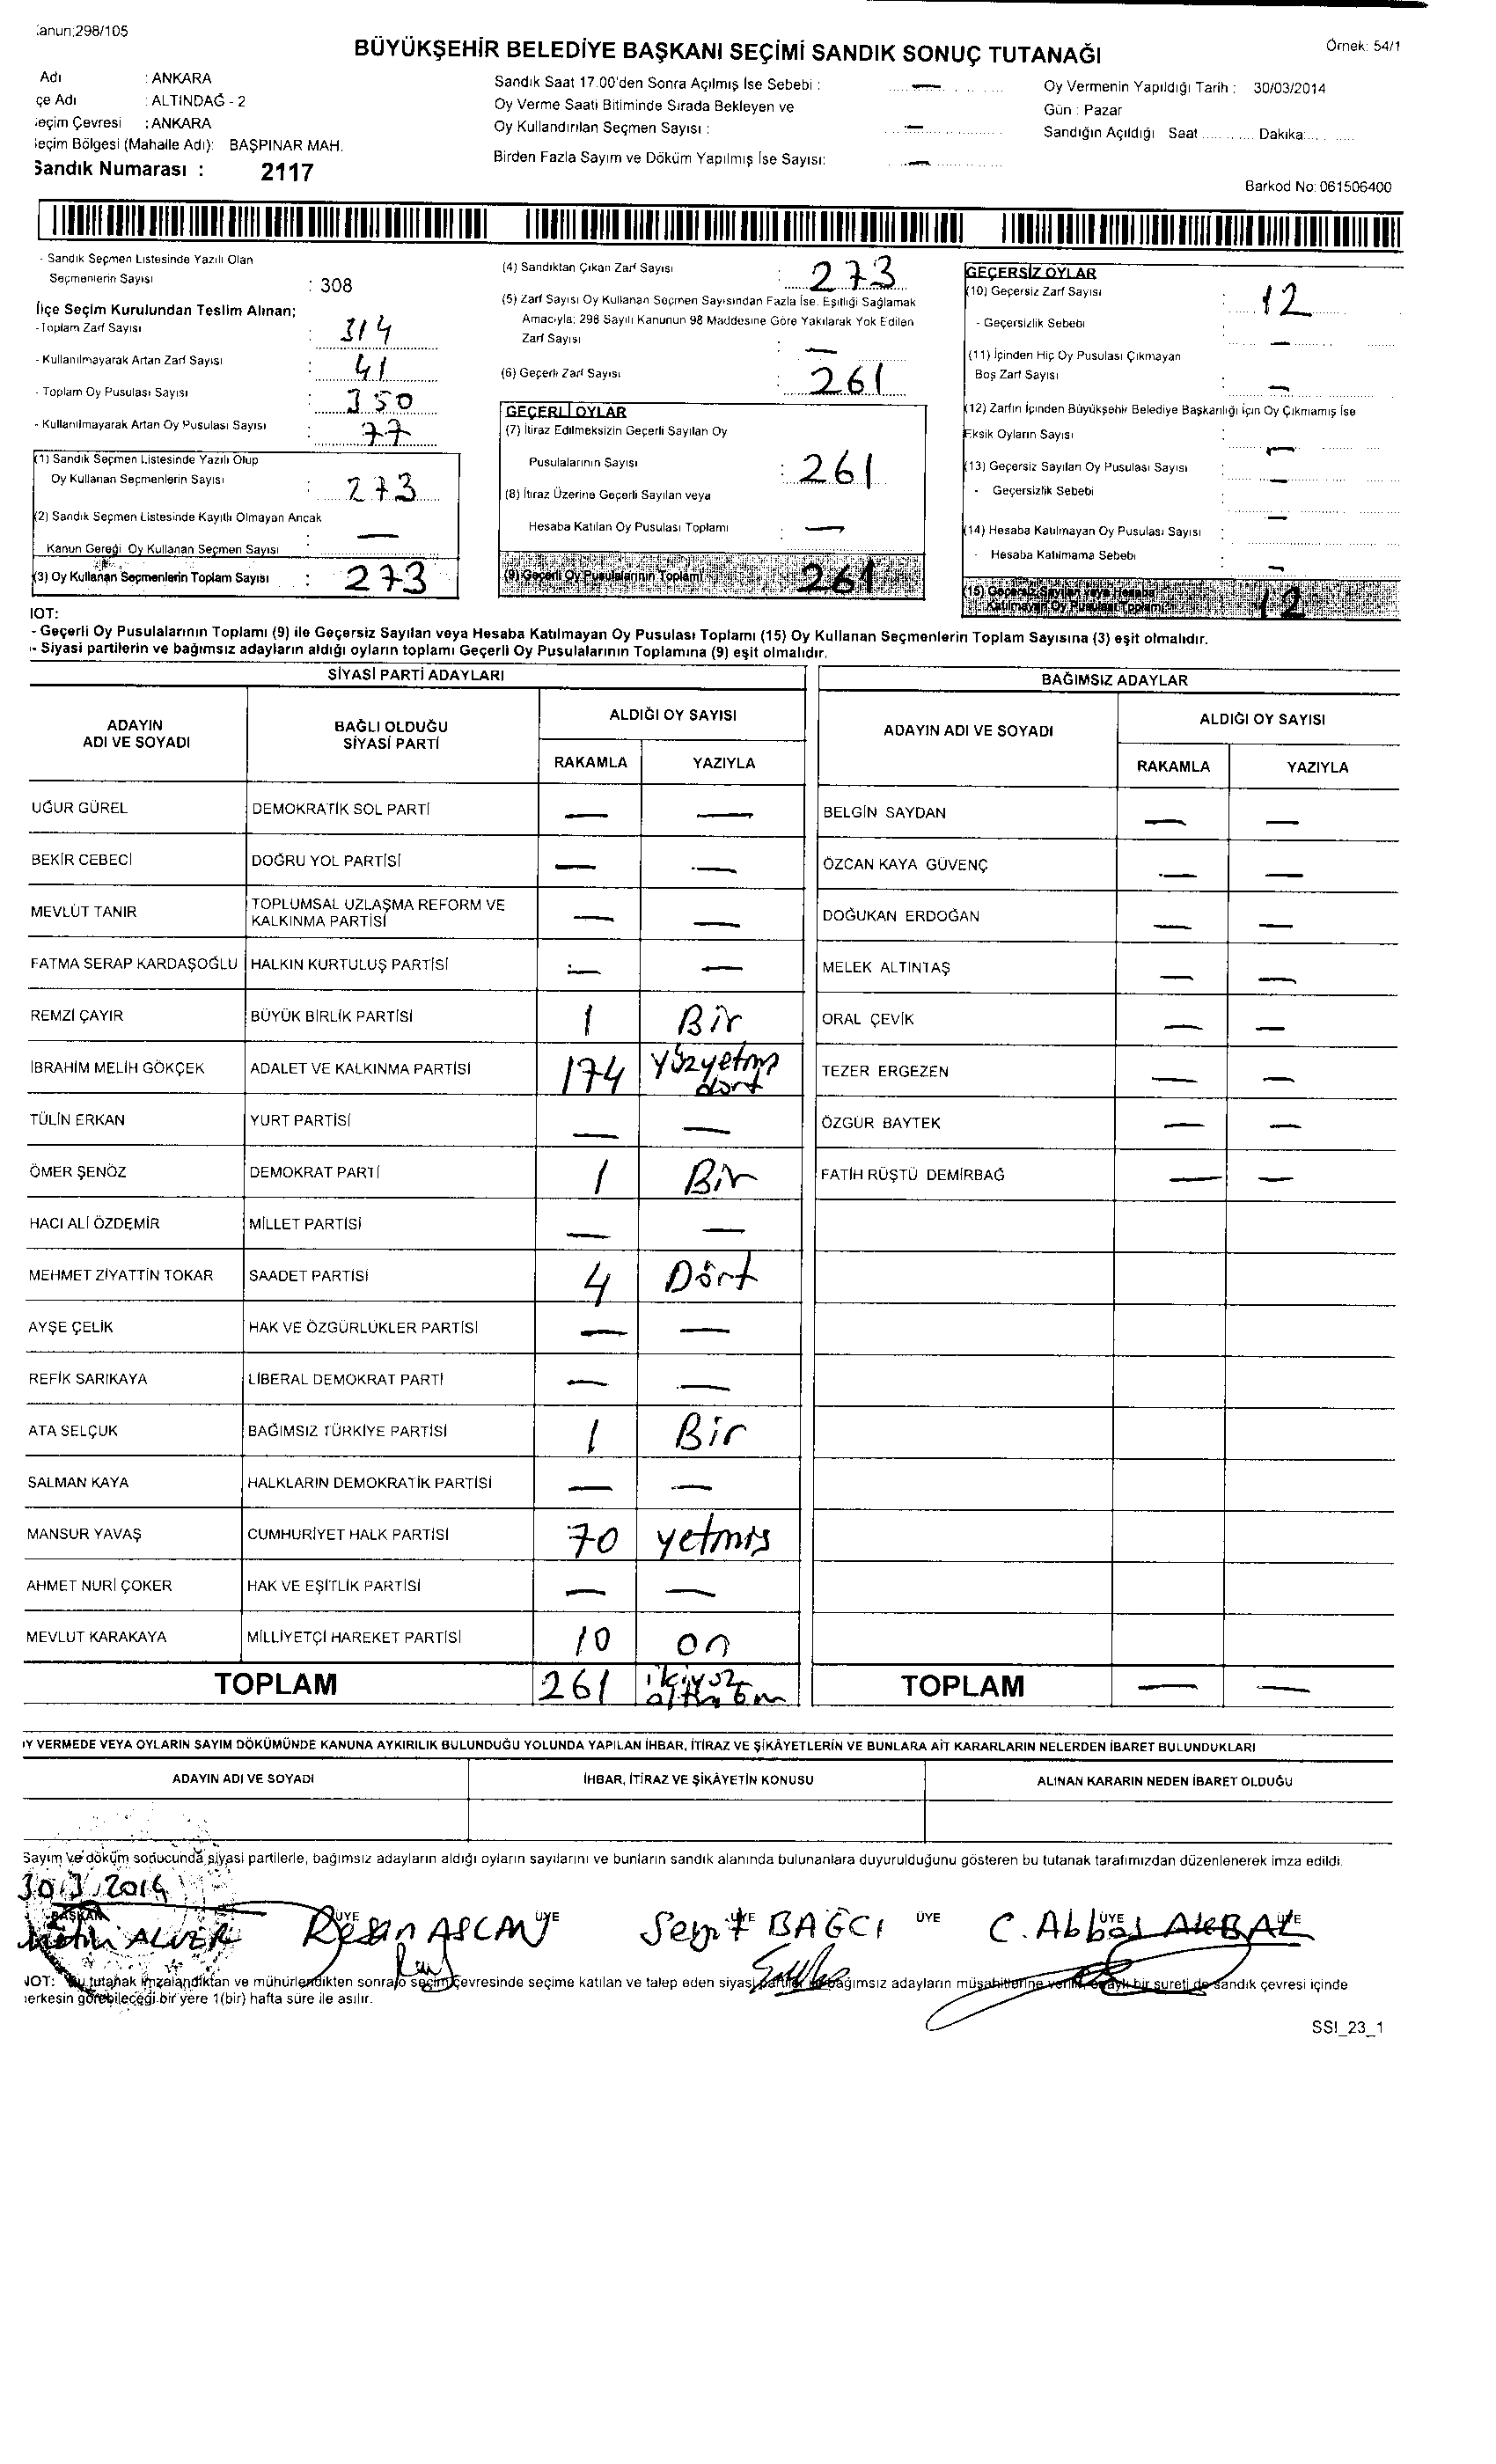 anun:298/105
BÜYÜKŞEHİR BELEDİYE BAŞKANI SEÇİMİ SANDIK SONUÇ TUTANAĞI
Örnek: 54/1
Adı : ANKARA
çe Adı : ALTINDAĞ - 2
eçim Çevresi : ANKARA
eçim Bölgesi (Mahalle Adı): BAŞPINAR MAH.
Sandık Numarası : 2117
Sandık Saat 17.00'den Sonra Açılmış İse Sebebi : —
Oy Verme Saati Bitiminde Sırada Bekleyen ve
Oy Kullandırılan Seçmen Sayısı : —
Birden Fazla Sayım ve Döküm Yapılmış İse Sayısı: —
Oy Vermenin Yapıldığı Tarih : 30/03/2014
Gün : Pazar
Sandığın Açıldığı Saat ........... Dakika:...........
Barkod No: 061506400
- Sandık Seçmen Listesinde Yazılı Olan
Seçmenlerin Sayısı : 308
İlçe Seçim Kurulundan Teslim Alınan;
- Toplam Zarf Sayısı : 314
- Kullanılmayarak Artan Zarf Sayısı : 41
- Toplam Oy Pusulası Sayısı : 350
- Kullanılmayarak Artan Oy Pusulası Sayısı : 77
(1) Sandık Seçmen Listesinde Yazılı Olup
Oy Kullanan Seçmenlerin Sayısı : 273
(2) Sandık Seçmen Listesinde Kayıtlı Olmayan Ancak
Kanun Gereği Oy Kullanan Seçmen Sayısı : —
(3) Oy Kullanan Seçmenlerin Toplam Sayısı : 273
(4) Sandıktan Çıkan Zarf Sayısı : 273
(5) Zarf Sayısı Oy Kullanan Seçmen Sayısından Fazla İse, Eşitliği Sağlamak
Amacıyla; 298 Sayılı Kanunun 98 Maddesine Göre Yakılarak Yok Edilen
Zarf Sayısı : —
(6) Geçerli Zarf Sayısı : 261
GEÇERLİ OYLAR
(7) İtiraz Edilmeksizin Geçerli Sayılan Oy
Pusulalarının Sayısı : 261
(8) İtiraz Üzerine Geçerli Sayılan veya
Hesaba Katılan Oy Pusulası Toplamı : —
(9) Geçerli Oy Pusulalarının Toplamı : 261
GEÇERSİZ OYLAR
(10) Geçersiz Zarf Sayısı : 12
- Geçersizlik Sebebi : —
(11) İçinden Hiç Oy Pusulası Çıkmayan
Boş Zarf Sayısı : —
(12) Zarfın İçinden Büyükşehir Belediye Başkanlığı İçin Oy Çıkmamış İse
Eksik Oyların Sayısı : —
(13) Geçersiz Sayılan Oy Pusulası Sayısı :
- Geçersizlik Sebebi : —
(14) Hesaba Katılmayan Oy Pusulası Sayısı : —
- Hesaba Katılmama Sebebi : —
(15) Geçersiz Sayılan veya Hesaba
Katılmayan Oy Pusulası Toplamı : 12
NOT:
- Geçerli Oy Pusulalarının Toplamı (9) ile Geçersiz Sayılan veya Hesaba Katılmayan Oy Pusulası Toplamı (15) Oy Kullanan Seçmenlerin Toplam Sayısına (3) eşit olmalıdır.
- Siyasi partilerin ve bağımsız adayların aldığı oyların toplamı Geçerli Oy Pusulalarının Toplamına (9) eşit olmalıdır.
SİYASİ PARTİ ADAYLARI
BAĞIMSIZ ADAYLAR
ADAYIN ADI VE SOYADI
BAĞLI OLDUĞU SİYASİ PARTİ
ALDIĞI OY SAYISI
RAKAMLA YAZIYLA
ADAYIN ADI VE SOYADI
ALDIĞI OY SAYISI
RAKAMLA YAZIYLA
UĞUR GÜREL DEMOKRATİK SOL PARTİ — — BELGİN SAYDAN — —
BEKİR CEBECİ DOĞRU YOL PARTİSİ — — ÖZCAN KAYA GÜVENÇ — —
MEVLÜT TANIR TOPLUMSAL UZLAŞMA REFORM VE KALKINMA PARTİSİ — — DOĞUKAN ERDOĞAN — —
FATMA SERAP KARDAŞOĞLU HALKIN KURTULUŞ PARTİSİ — — MELEK ALTINTAŞ — —
REMZİ ÇAYIR BÜYÜK BİRLİK PARTİSİ 1 Bir ORAL ÇEVİK — —
İBRAHİM MELİH GÖKÇEK ADALET VE KALKINMA PARTİSİ 174 yüzyetmiş dört TEZER ERGEZEN — —
TÜLİN ERKAN YURT PARTİSİ — — ÖZGÜR BAYTEK — —
ÖMER ŞENÖZ DEMOKRAT PARTİ 1 Bir FATİH RÜŞTÜ DEMİRBAĞ — —
HACI ALİ ÖZDEMİR MİLLET PARTİSİ — —
MEHMET ZİYATTİN TOKAR SAADET PARTİSİ 4 Dört
AYŞE ÇELİK HAK VE ÖZGÜRLÜKLER PARTİSİ — —
REFİK SARIKAYA LİBERAL DEMOKRAT PARTİ — —
ATA SELÇUK BAĞIMSIZ TÜRKİYE PARTİSİ 1 Bir
SALMAN KAYA HALKLARIN DEMOKRATİK PARTİSİ — —
MANSUR YAVAŞ CUMHURİYET HALK PARTİSİ 70 yetmiş
AHMET NURİ ÇOKER HAK VE EŞİTLİK PARTİSİ — —
MEVLUT KARAKAYA MİLLİYETÇİ HAREKET PARTİSİ 10 on
TOPLAM 261 ikiyüz TOPLAM — —
Y VERMEDE VEYA OYLARIN SAYIM DÖKÜMÜNDE KANUNA AYKIRILIK BULUNDUĞU YOLUNDA YAPILAN İHBAR, İTİRAZ VE ŞİKÂYETLERİN VE BUNLARA AİT KARARLARIN NELERDEN İBARET BULUNDUKLARI
ADAYIN ADI VE SOYADI İHBAR, İTİRAZ VE ŞİKÂYETİN KONUSU ALINAN KARARIN NEDEN İBARET OLDUĞU
Sayım ve döküm sonucunda siyasi partilerle, bağımsız adayların aldığı oyların sayılarını ve bunların sandık alanında bulunanlara duyurulduğunu gösteren bu tutanak tarafımızdan düzenlenerek imza edildi.
30/3/2014
BAŞKAN ÜYE ÜYE ÜYE ÜYE ÜYE ÜYE
Metin ASCAN BAĞCI C. Abbas AKBAL
NOT: Bu tutanak imzalandıktan ve mühürlendikten sonra o seçim çevresinde seçime katılan ve talep eden siyasi partiler ile bağımsız adayların müşahitlerine verilir, onaylı bir sureti de sandık çevresi içinde
herkesin görebileceği bir yere 1(bir) hafta süre ile asılır.
SSI_23_1